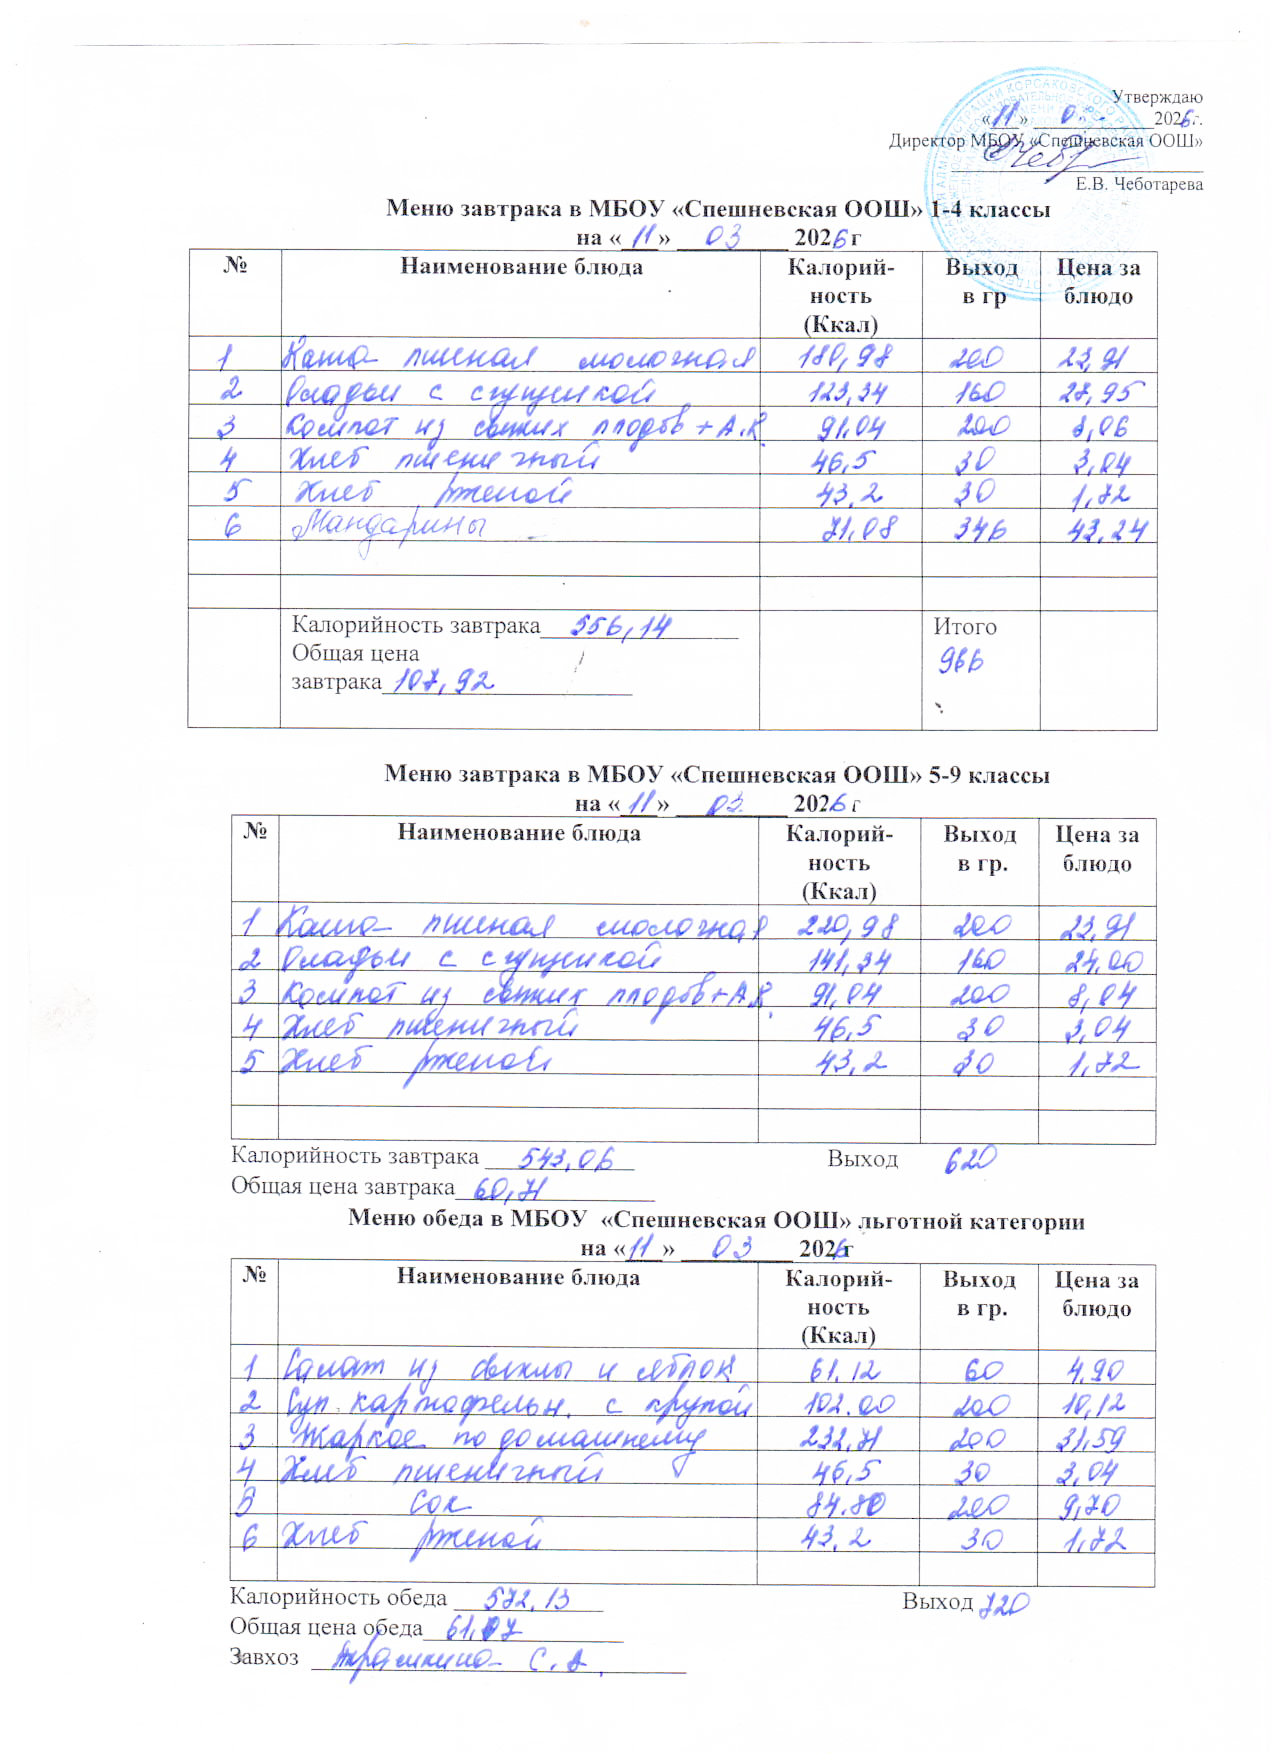 Утверждаю
«11» 0 2026 г.
Директор МБОУ «Спешневская ООШ»
Е.В. Чеботарева
Меню завтрака в МБОУ «Спешневская ООШ» 1-4 классы
на «11» 03 2026 г
№ Наименование блюда Калорий-ность (Ккал) Выход в гр Цена за блюдо
1 Каша пшеная молочная 180,98 200 23,91
2 Оладьи с сгущенкой 123,34 160 27,95
3 Компот из свежих плодов + А.К. 91.04 200 8,06
4 Хлеб пшеничный 46,5 30 3,04
5 Хлеб ржаной 43,2 30 1,72
6 Мандарины 71,08 346 43,24
Калорийность завтрака 556,14 Итого
Общая цена 966
завтрака 107,92
Меню завтрака в МБОУ «Спешневская ООШ» 5-9 классы
на «11» 03. 2026 г
№ Наименование блюда Калорий-ность (Ккал) Выход в гр. Цена за блюдо
1 Каша пшеная молочная 220,98 200 23,91
2 Оладьи с сгущенкой 141,34 160 24,00
3 Компот из свежих плодов+А.К. 91,04 200 8,04
4 Хлеб пшеничный 46,5 30 3,04
5 Хлеб ржаной 43,2 30 1,72
Калорийность завтрака 543,06 Выход 620
Общая цена завтрака 60,71
Меню обеда в МБОУ «Спешневская ООШ» льготной категории
на «11» 03 2026 г
№ Наименование блюда Калорий-ность (Ккал) Выход в гр. Цена за блюдо
1 Салат из свеклы и яблок 61.12 60 4.90
2 Суп картофельн. с крупой 102.00 200 10,12
3 Жаркое по домашнему 232,71 200 31,59
4 Хлеб пшеничный 46,5 30 3,04
5 Сок 84.80 200 9,70
6 Хлеб ржаной 43.2 30 1,72
Калорийность обеда 572,13 Выход 720
Общая цена обеда 61,07
Завхоз С.А.